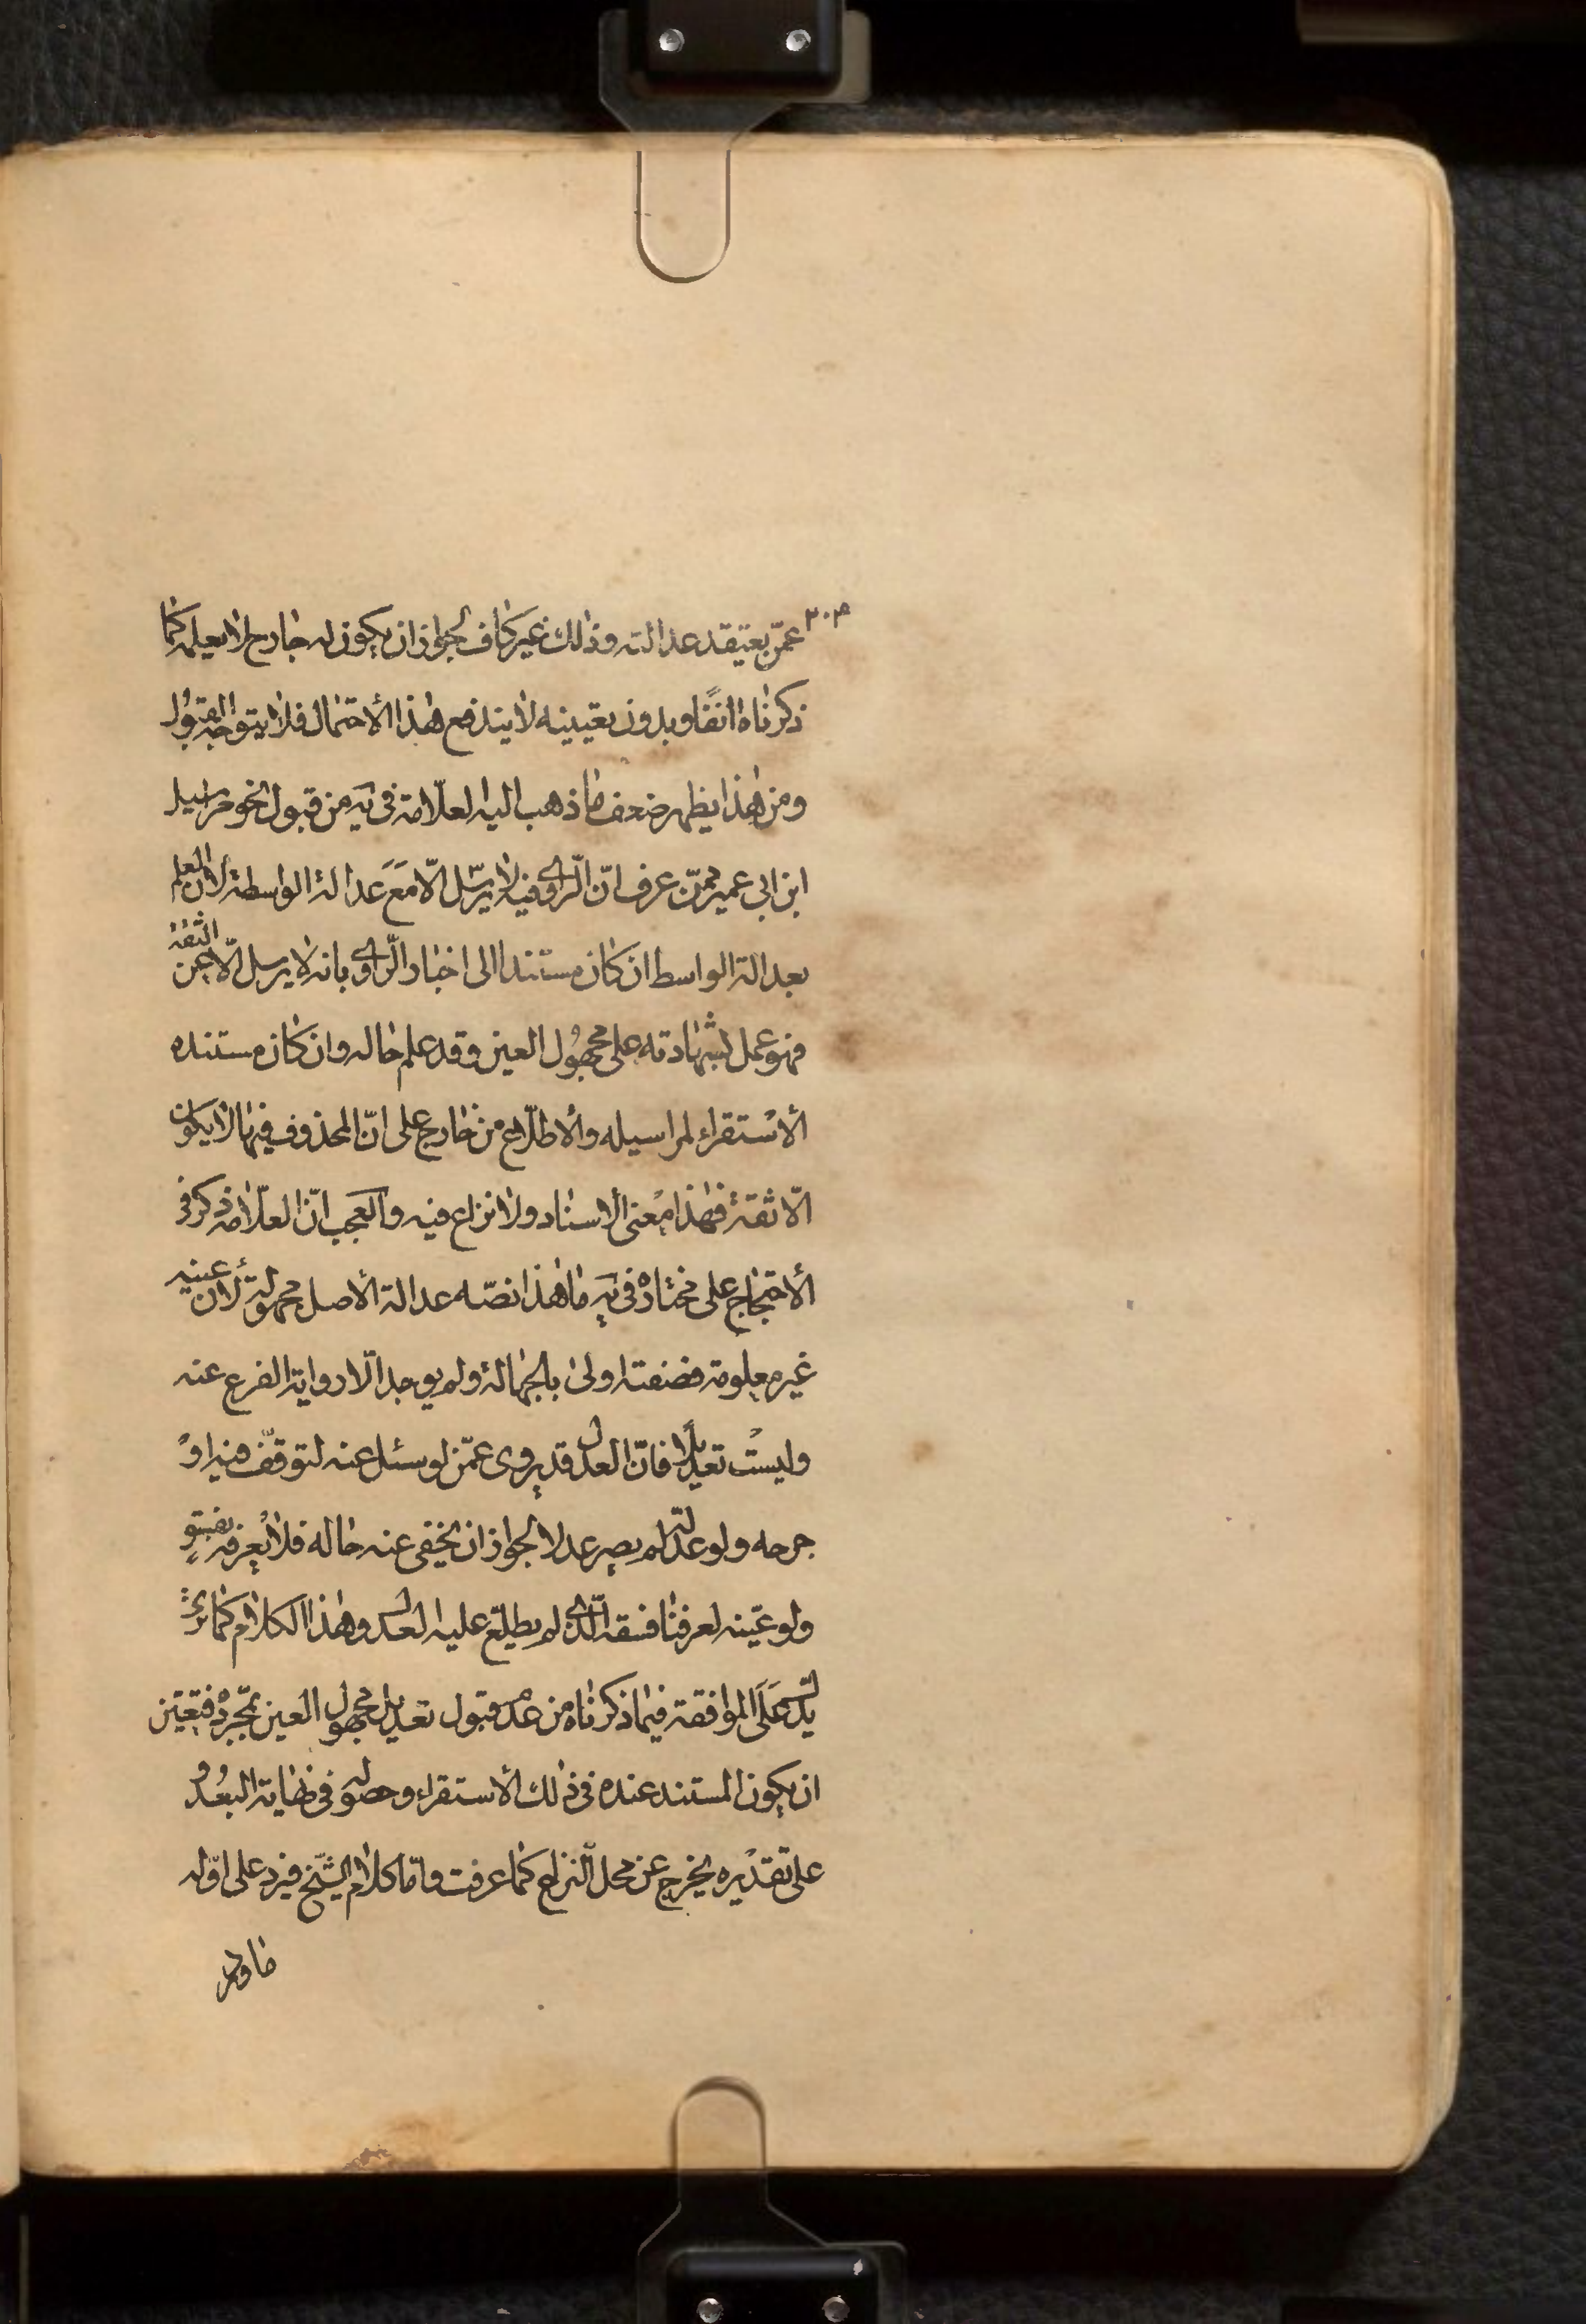 عمّن يعتقد عدالته وذلك غير كاف لجواز ان يكون له جارح لا يعلمه كما
ذكرناه انفًا وبدون تعيينه لا يندفع هذا الأحتمال فلا يتوجه القبول
ومن هذا يظهر ضعف ما ذهب اليه العلّامة فى يه من قبول نحو مراسيل
ابن ابى عمير ممّن عرف انّ الرّاوى فيه لا يرسل الّا مَعَ عدالة الواسطة لأن العلم
بعدالة الواسط ان كان مستندا الى اخبار الرّاوى بانه لا يرسل الّا عن الثقة
فهو عمل بشهادته على مجهُول العين وقد علم حاله وان كان مستنده
الأستقراء لمراسيله والأطلاع من خارج على انّ المحذوف فيها لا يكون
الّا ثقة فهذا معنى الأسناد ولا نزاع فيه والعجب انّ العلّامة ذكر فى
الأحتجاج على مختاره فى يه ما هذا نصّه عدالة الأصل مجهولة لأن عينه
غير معلومة فصفته اولى بالجهالة ولم يوجد الّا رواية الفرع عنه
وليسْت تعديلًا فانّ العدل قد يروى عمّن لو سئل عنه لتوقّف فيه اوْ
جرحه ولو عدّله لم يصر عدلا لجواز ان يخفى عنه حاله فلا يعرفه بفسق
ولو عيّنه لعرفنا فسقه الّذى لم يطلع عليه العدل وهذا الكلام كما ترى
يدلّ عَلَى الموافقة فيما ذكرناه من عدم قبول تعديل مجهول العين بمجرده فتعيّن
ان يكون المستند عنده فى ذلك الأستقراء وحصوله فى نهاية البُعْد و
على تقديره يخرج عن محل النزاع كما عرفت وامّا كلام الشّيخ فيرد على اوّله
ما ورد